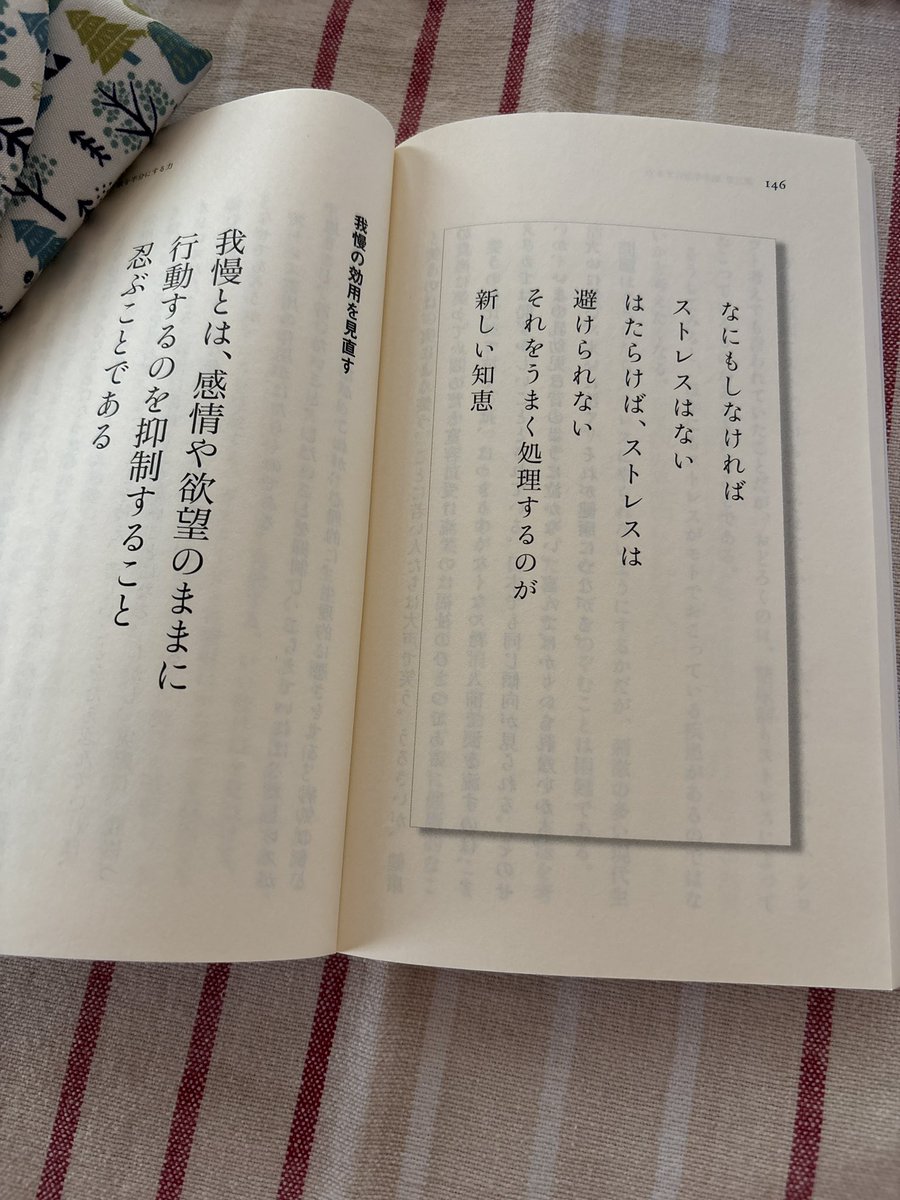 146
なにもしなければ
ストレスはない
はたらけば、ストレスは
避けられない
それをうまく処理するのが
新しい知恵
我慢の効用を見直す
我慢とは、感情や欲望のままに
行動するのを抑制すること
忍ぶことである
半分にする力